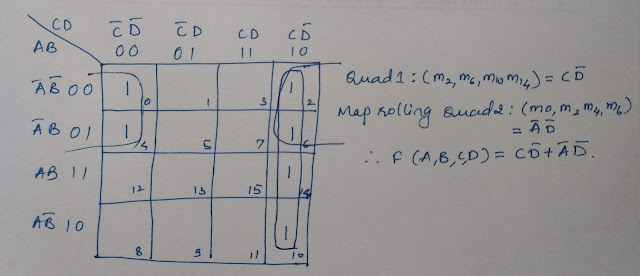 CD
C̅ D̅ C̅ D CD CD̅
AB 00 01 11 10
A̅B̅ 00 1 0 1 3 1 2
A̅B 01 1 4 5 7 1 6
AB 11 12 13 15 1 14
AB̅ 10 8 9 11 1 10
Quad1 : (m2, m6, m10 m14) = CD̅
Map rolling Quad2 : (m0, m2 m4, m6)
= A̅ D̅
∴ F (A,B,C,D) = CD̅ + A̅ D̅.